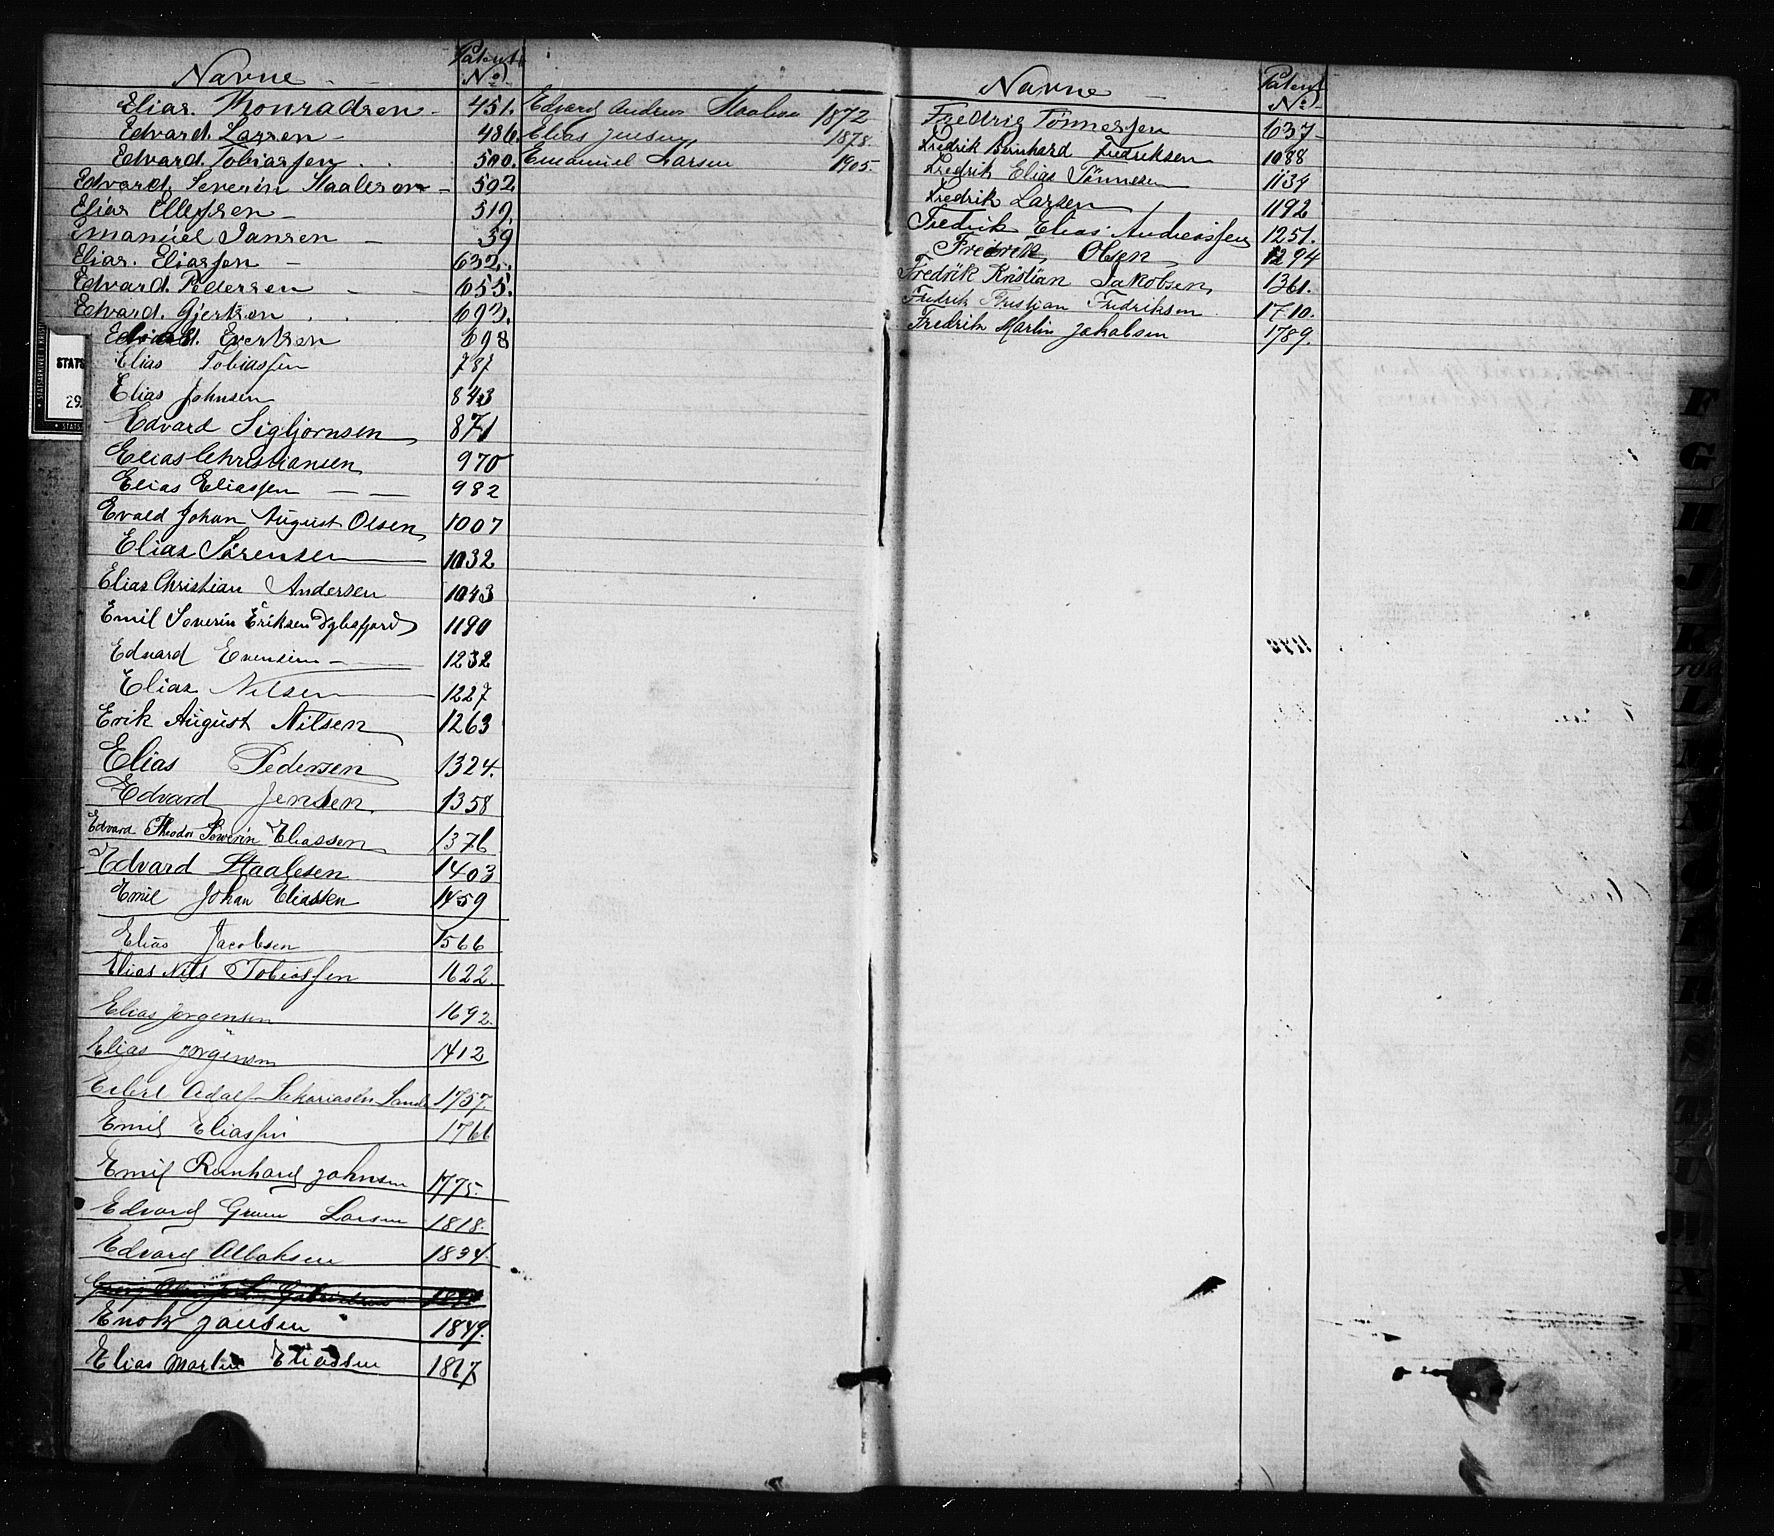 Navne Patent No
Elias Thonradsen 451.
Edvard Larsen 486.
Edvard Tobiassen 500.
Edvard Severin Staalesen 502
Elias Ellefsen 519.
Emanuel Jansen 59
Elias Eliassen 632.
Edvard Pedersen 655.
Edvard Gjertsen 693.
Evertsen 698
Elias Tobiassen 787
Elias Johnsen 843
Edvard Sigbjørnsen 871
Elias Christiansen 970
Elias Eliassen 982
Evald Johan August Olsen 1007
Elias Sørensen 1032
Elias Christian Andersen 1043
Emil Severin Eriksen Dybsfjord 1190
Edvard Evensen 1232
Elias Nilsen 1227
Erik August Nilsen 1263
Elias Pedersen 1324.
Edvard Jensen 1358
Edvard Theodor Severin Eliassen 1376
Edvard Staalesen 1403
Emil Johan Eliassen 1459
Elias Jacobsen 1566
Elias Nils Tobiassen 1622.
Elias Jørgensen 1692.
Elias Jørgensen 1412
Eilert Adolf Sakariasen Sande 1757.
Emil Eliassen 1766
Emil Reinhard Johnsen 1775.
Edvard Larsen 1818.
Edvard 1834.
Enok Jansen 1849.
Elias Martin Eliassen 1867
Edvard Andreas Staalesen 1872
Elias Jensen 1878.
Emanuel Larsen 1905.
Navne Patent No
Fredrig Tønnessen 637
Fredrik Bernhard Fredriksen 1088
Fredrik Elias Tønnesen 1134
Fredrik Larsen 1192
Fredrik Elias Andreassen 1251.
Fredrik Olsen 1294
Fredrik Kristian Jakobsen 1361.
Fredrik Kristian Fredriksen 1710.
Fredrik Martin Jakobsen 1789.
STATS
29.
F
G
H
J
K
L